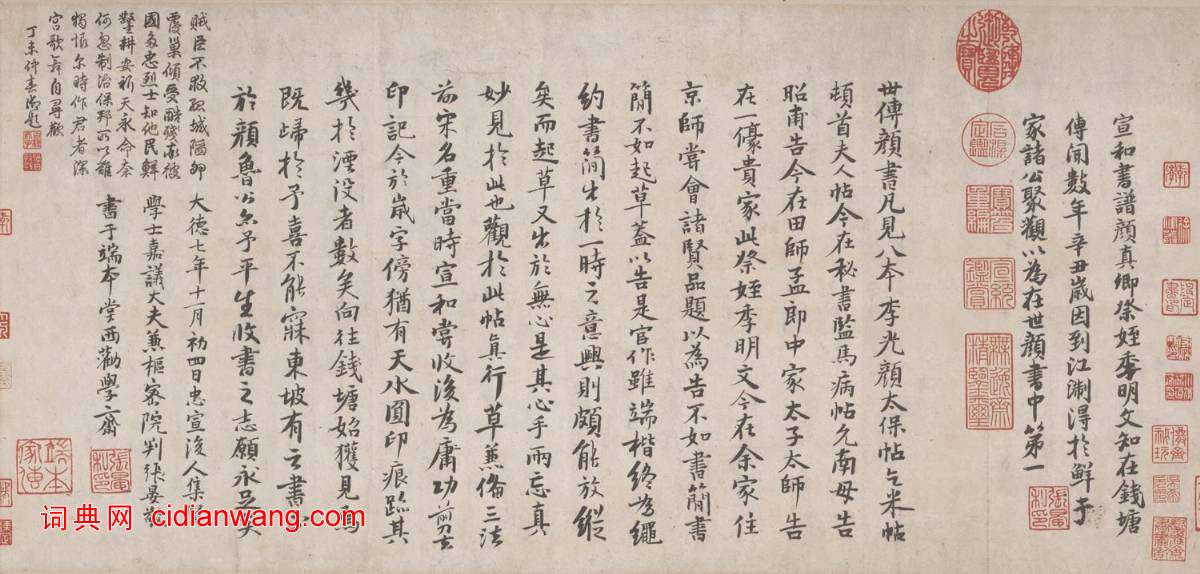 宣和書譜顏真卿祭姪季明文知在錢塘
傳聞數年辛丑歲因到江浙得於鮮于
家諸公聚觀以為在世顏書中第一
世傳顏書凡見八本李光顏太保帖乞米帖
頓首夫人帖今在秘書監馬病帖允南母告
昭甫告今在田師孟郎中家太子太師告
在一豪貴家此祭姪季明文今在余家住
京師嘗會諸賢品題以為告不如書簡書
簡不如起草蓋以告是官作雖端楷終為繩
約書簡出於一時之意興則頗能放縱
矣而起草又出於無心是其心手兩忘真
妙見於此也觀於此帖真行草兼備三法
前宋名重當時宣和嘗收後為庸功剪去
印記今於歲字傍猶有天水圓印痕跡其
幾於湮没者數矣向往錢塘始獲見焉
既歸於予喜不能寐東坡有云書
於顏魯公亦予平生收書之志願永足矣
大德七年十月初四日忠宣後人集
學士嘉議大夫兼樞密院判張晏
書于端本堂西勸學齋
賊臣不救孤城陷卵
覆巢傾受酷殘家彼
國多忠烈士知他民鮮
鑿耕安祈天永命奈
何忽制治保邦所以難
獨恨尔時作君者深
宮歌舞自尋歡
丁未仲春御題
词典网 cidianwang.com